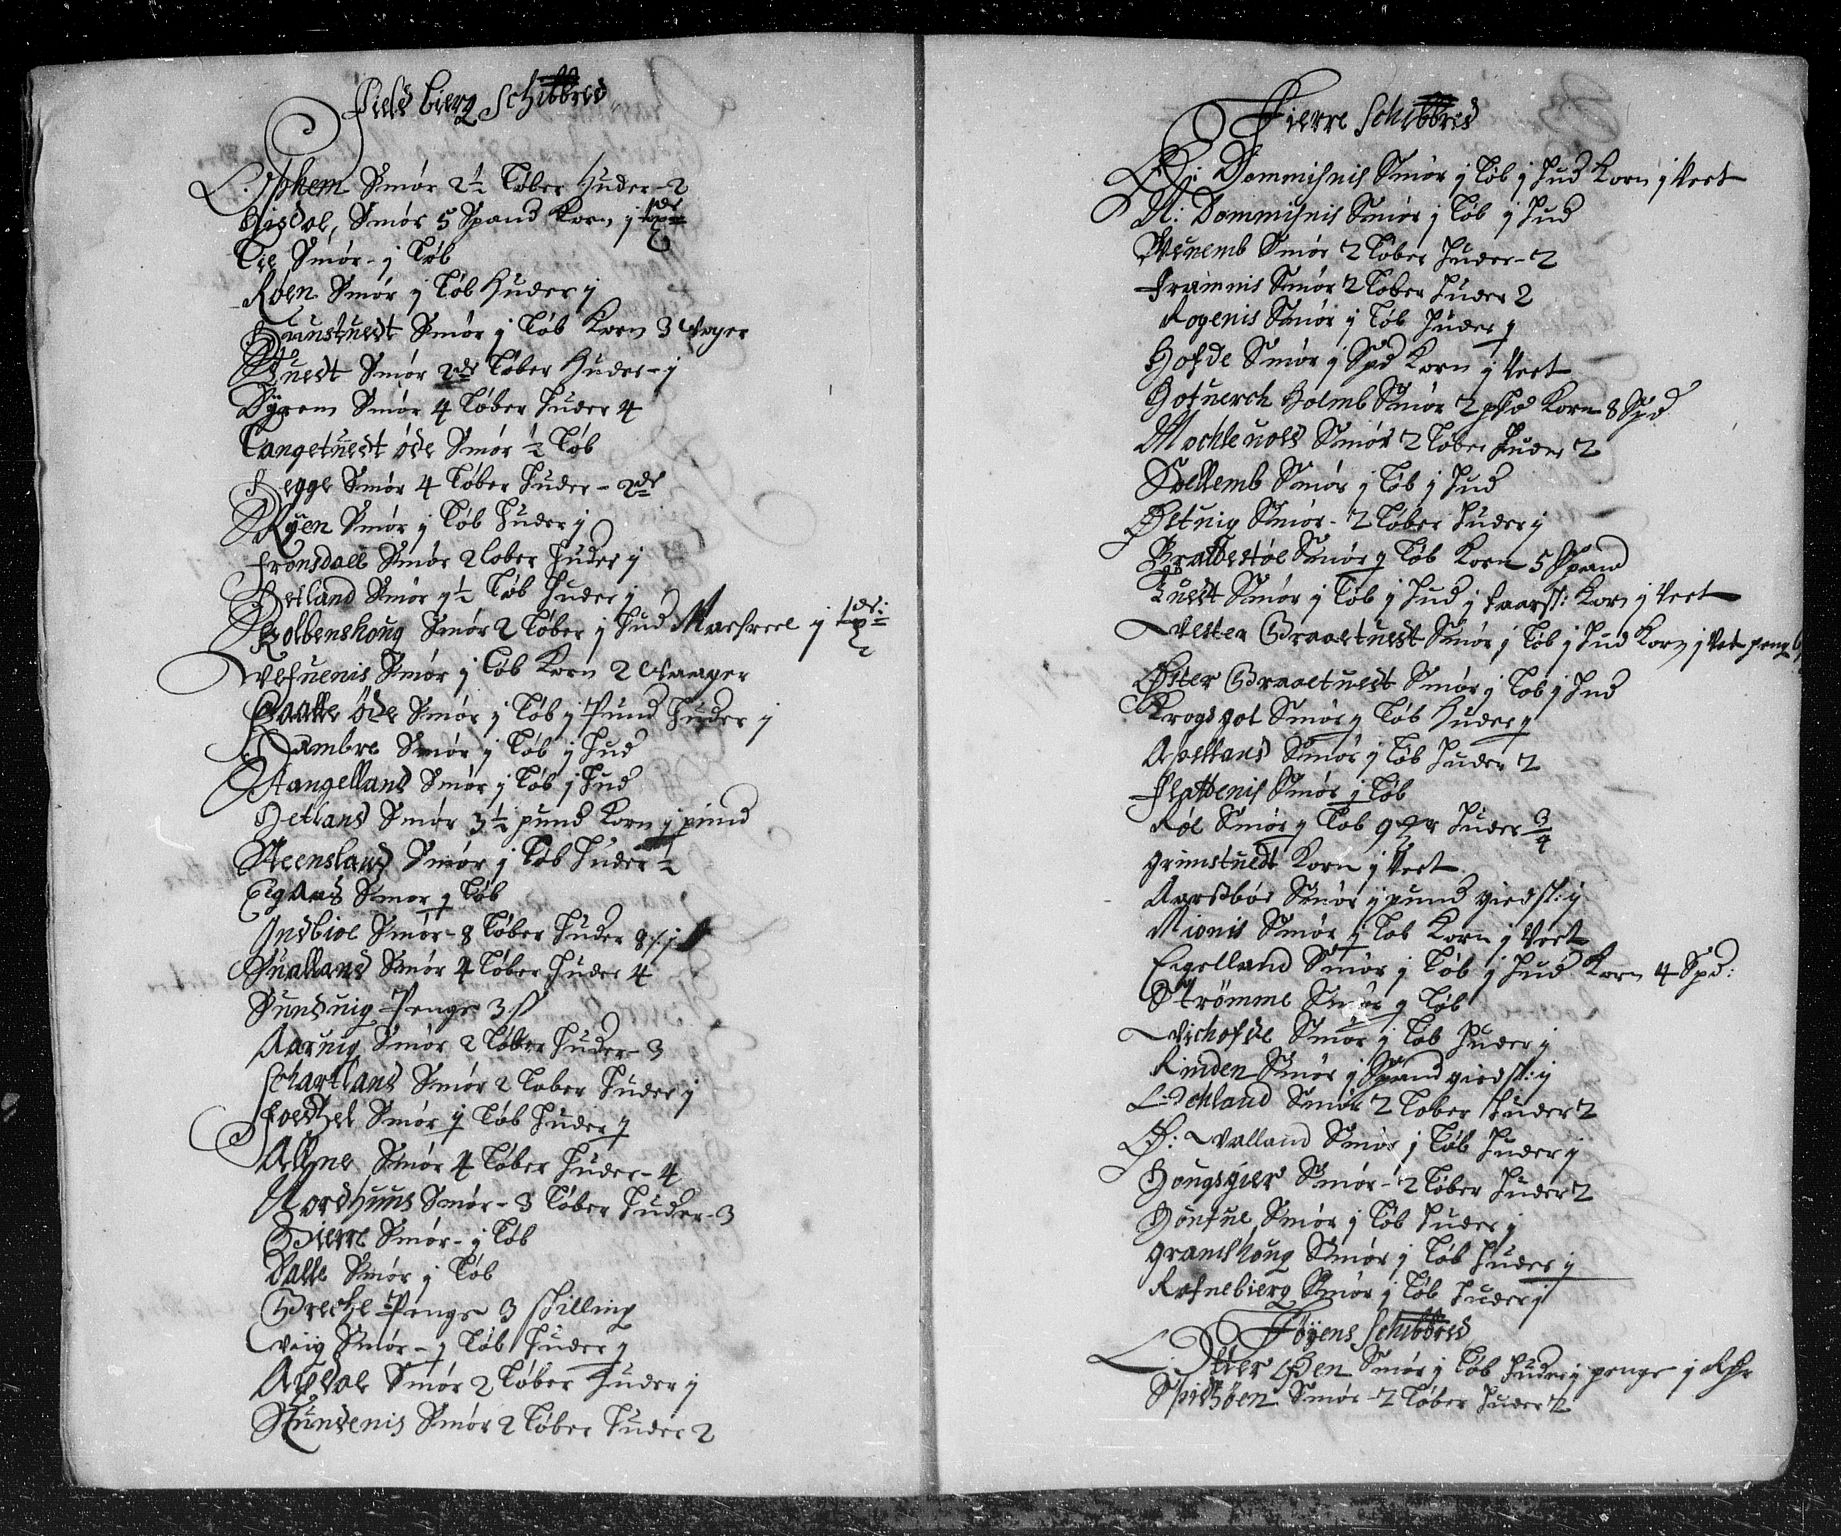 Field bierg Schibbred
L. Ophem Smør 2½ Løber Huder – 2
Gisdal, Smør 5 Spand Korn j
Lie Smør – j Løb
Røen Smør j Løb Huder j
Smør j Løb Korn 3 Vager
Tuedt Smør 2 Løber Huder – j
Dÿrem Smør 4 Løber Huder 4
Langetuedt øde Smør ½ Løb
Hegge Smør 4 Løber Huder – 2
Rÿen Smør j Løb Huder j
Frønsdall Smør 2 Løber Huder j
Hetland Smør 1½ Løb Huder j
Kolbenshoug Smør 2 Løber j Hud Machreel j
Vefuenis Smør j Løb Korn 2 Vaager
øde Smør j Løb j Pund Huder j
Hambre Smør j Løb j Hud
Stangelland Smør j Løb j Hud
Hetland Smør 3½ pund Korn j pund
Steensland Smør j Løb Huder ½
Eigand Smør j Løb
Indbioe Smør – 8 Løber Huder 8
Hualland Smør 4 Løber Huder 4
Sunduig Penge 3 ß
Aaruig Smør 2 Løber Huder – 3
Schartland Smør 2 Løber Huder j
Smør j Løb Huder j
Allne Smør 4 Løber Huder – 4
Nordhuus Smør – 3 Løber Huder – 3
Bierre Smør – j Løb
Dalle Smør j Løb
Brecke Penge 3 skilling
Vüig Smør – j Løb Huder j
Apdal Smør 2 Løber Huder j
Rundenis Smør 2 Løber Huder 2
Fierre Schibbred
Ø: Dommisnis Smør j Løb j Hud Korn j Vert
N: Dommisnis Smør j Løb j Hud
Smør 2 Løber Huder – 2
Framnis Smør 2 Løber Huder 2
Rogenis Smør j Løb Huder j
Hofde Smør j Spd Korn j Vett
Hofuerch Holmb Smør 2 Korn 8 Spd
Mochleuold Smør 2 Løber Huder 2
Soellemb Smør j Løb j Hud
Østuig Smør – 2 Løber Huder j
Brattestøl Smør j Løb Korn 5 Spand
Tuedt Smør j Løb j Hud j Faarsk: Korn j Vett
Vester Graaetuedt Smør j Løb j Hud Korn j Vet peng
Øster Graaetuedt Smør j Løb j Hud
Krogsgot Smør j Løb Huder j
Apelland Smør j Løb Huder 2
Flattenis Smør j Løb
Røl Smør j Løb Huder ¾
Grimstuedt Korn j Vett
Aarsbøe Smør j pund giedsk: j
Mionis Smør j Løb Korn j Vert
Eigelland Smør j Løb j Hud Korn 4 Spd:
Strømme Smør j Løb
Vichofde Smør j Løb Huder j
Rinden Smør j Spand giedsk: j
L. Øchland Smør 2 Løber Huder 2
Ø: Valland Smør j Løb Huder j
Hougsgier Smør – 2 Løber Huder 2
Smør j Løb Huder j
Gramshoug Smør j Løb Huder j
Refnebierg Smør j Løb Huder j
Føyens Schibbred
L. Otterøen Smør j Løb Huder j penge j Rdr
Spidsøen Smør – 2 Løber Huder 2